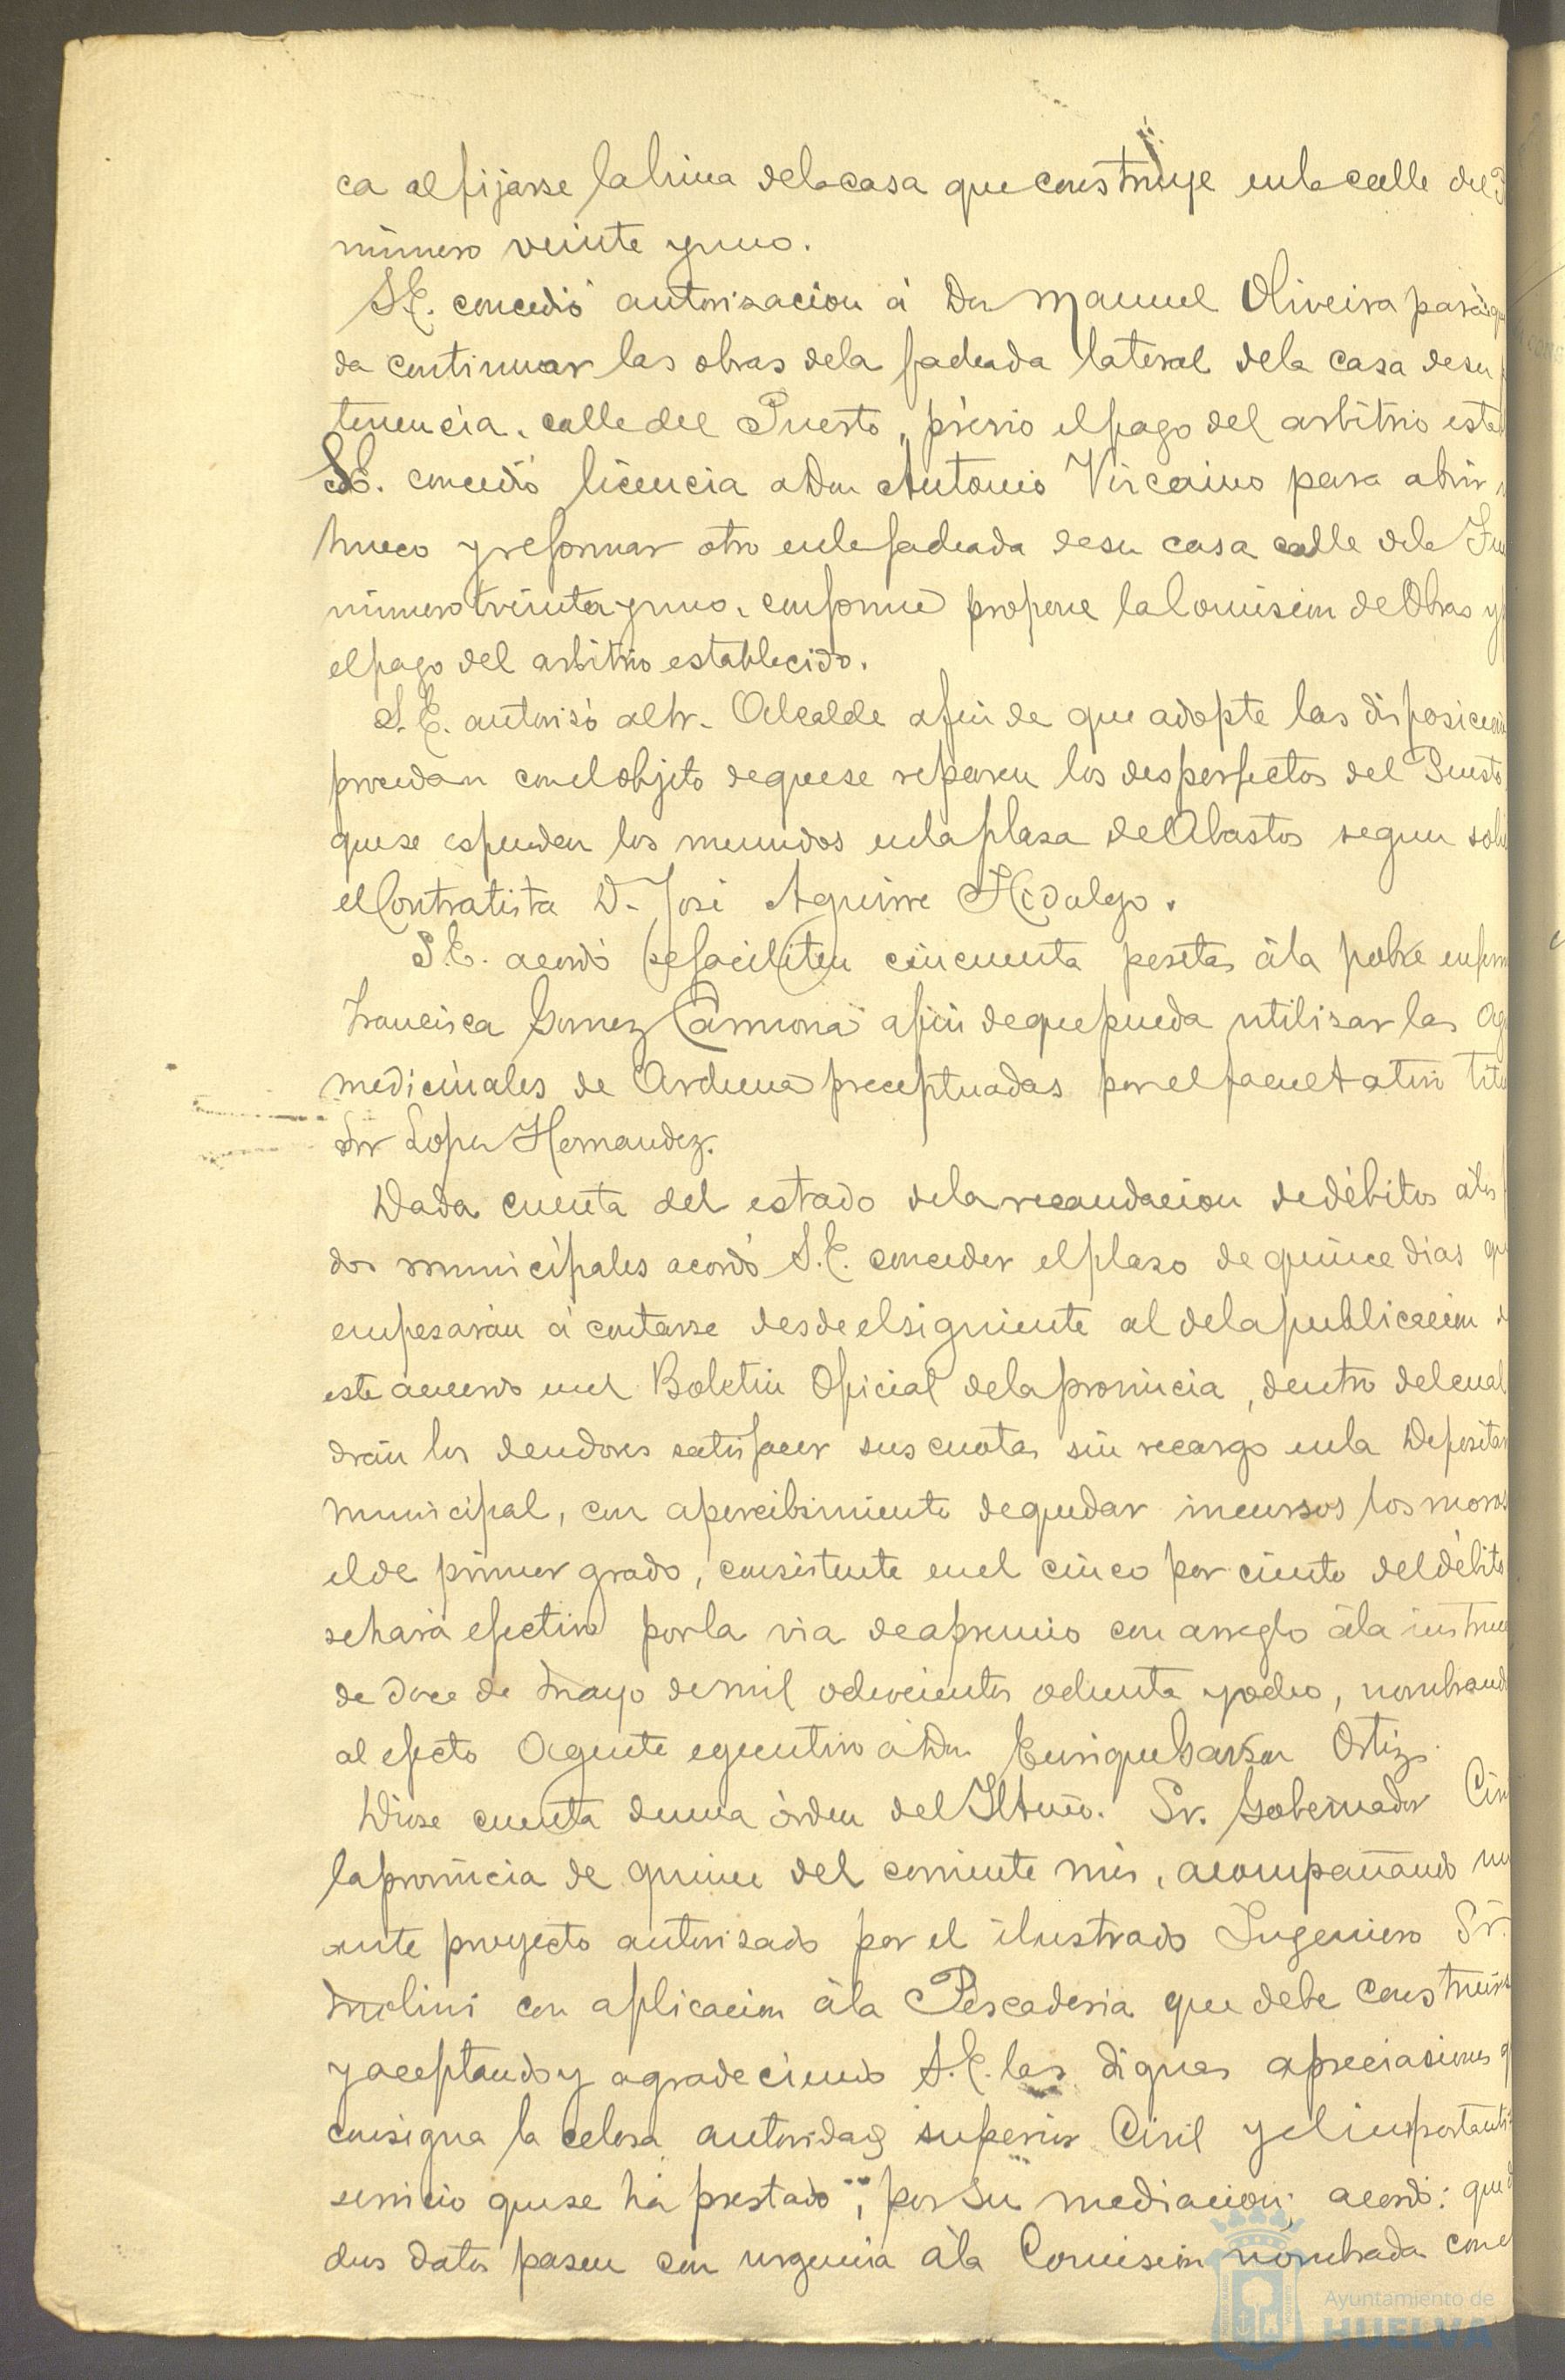 ca al fijarse la linea de la casa que construye en la calle del P
número veinte y uno.
S.E. concedió autorizacion á Don Manuel Oliveira para que
da continuar las obras de la fachada lateral de la casa de su p
tenencia, calle del Puerto, prévio el pago del arbitrio estab
S.E. concedió licencia a Don Antonio Vizcaino para abrir
hueco y reformar otro en la fachada de su casa calle de la Fu
número treinta y uno, conforme propone la Comision de Obras y
el pago del arbitrio establecido.
S.E. autorisó al Sr. Alcalde a fin de que adopte las disposicion
procedan con el objeto de que se reparen los desperfectos del Puesto
que se espenden los menudos en la plasa de Abastos segun soli
el Contratista D. José Aguirre Hidalgo.
S.E. acordó se faciliten cincuenta pesetas á la pobre enferm
Francisca Gomez Carmona a fin de que pueda utilisar las Ag
medicinales de Archena preceptuadas por el facultativo titu
Sr Lopez Hernandez.
Dada cuenta del estado de la recaudacion de débitos á los f
dos municipales acordó S.E. conceder el plaso de quince dias qu
empesarán á contarse desde el siguiente al de la publicacion d
este acuerdo en el Boletin Oficial de la provincia, dentro del cual
drán los deudores satisfacer sus cuotas sin recargo en la Depositar
municipal, con apercibimiento de quedar incursos los moros
el de primer grado, consistente en el cinco por ciento del débito
se hará efectivo por la via de apremio con arreglo á la instruc
de doce de Mayo de mil ochocientos ochenta y ocho, nombrand
al efecto Agente egecutivo á Don Enrique Garzon Ortiz.
Diose cuenta de una órden del Iltmo. Sr. Gobernador Civi
la provincia de quince del corriente mes, acompañando un
ante proyecto autorisado por el ilustrado Ingeniero Sr.
Molini con aplicacion á la Pescaderia que debe construirs
y aceptando y agradeciendo S.E. las dignas apreciasiones q
consigna la celosa autoridad superior Civil y el importanti
servicio que se há prestado, por su mediacion; acordó: que d
chos datos pasen con urgencia á la Comision nombrada con e
Ayuntamiento de
HUELVA